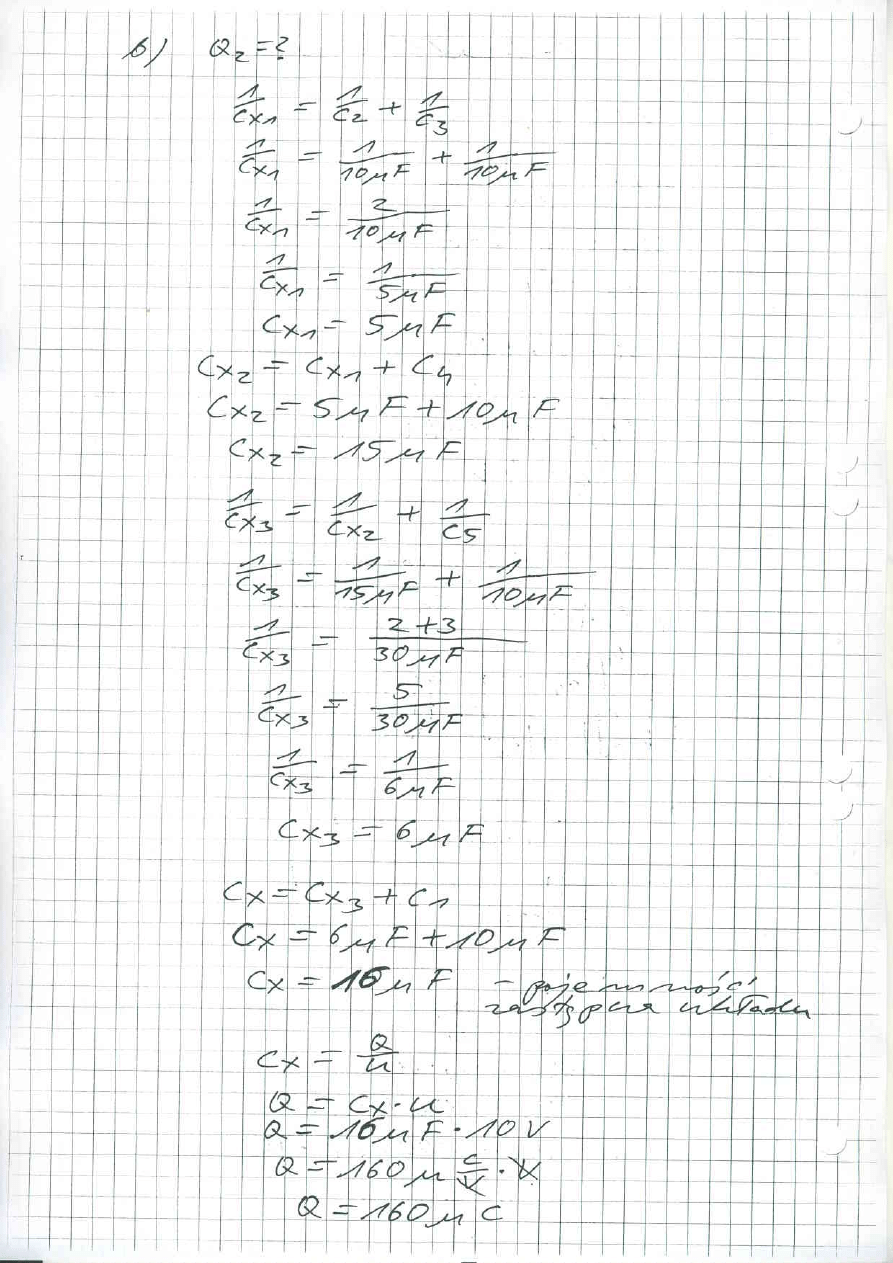 b) Q₂ = ?
1/Cx₁ = 1/C₂ + 1/C₃
1/Cx₁ = 1/10μF + 1/10μF
1/Cx₁ = 2/10μF
1/Cx₁ = 1/5μF
Cx₁ = 5μF
Cx₂ = Cx₁ + C₄
Cx₂ = 5μF + 10μF
Cx₂ = 15μF
1/Cx₃ = 1/Cx₂ + 1/C₅
1/Cx₃ = 1/15μF + 1/10μF
1/Cx₃ = 2+3/30μF
1/Cx₃ = 5/30μF
1/Cx₃ = 1/6μF
Cx₃ = 6μF
Cx = Cx₃ + C₁
Cx = 6μF + 10μF
Cx = 16μF - pojemność
zastępcza układu
Cx = Q/U
Q = Cx · U
Q = 16μF · 10V
Q = 160μ C/V · V
Q = 160μC